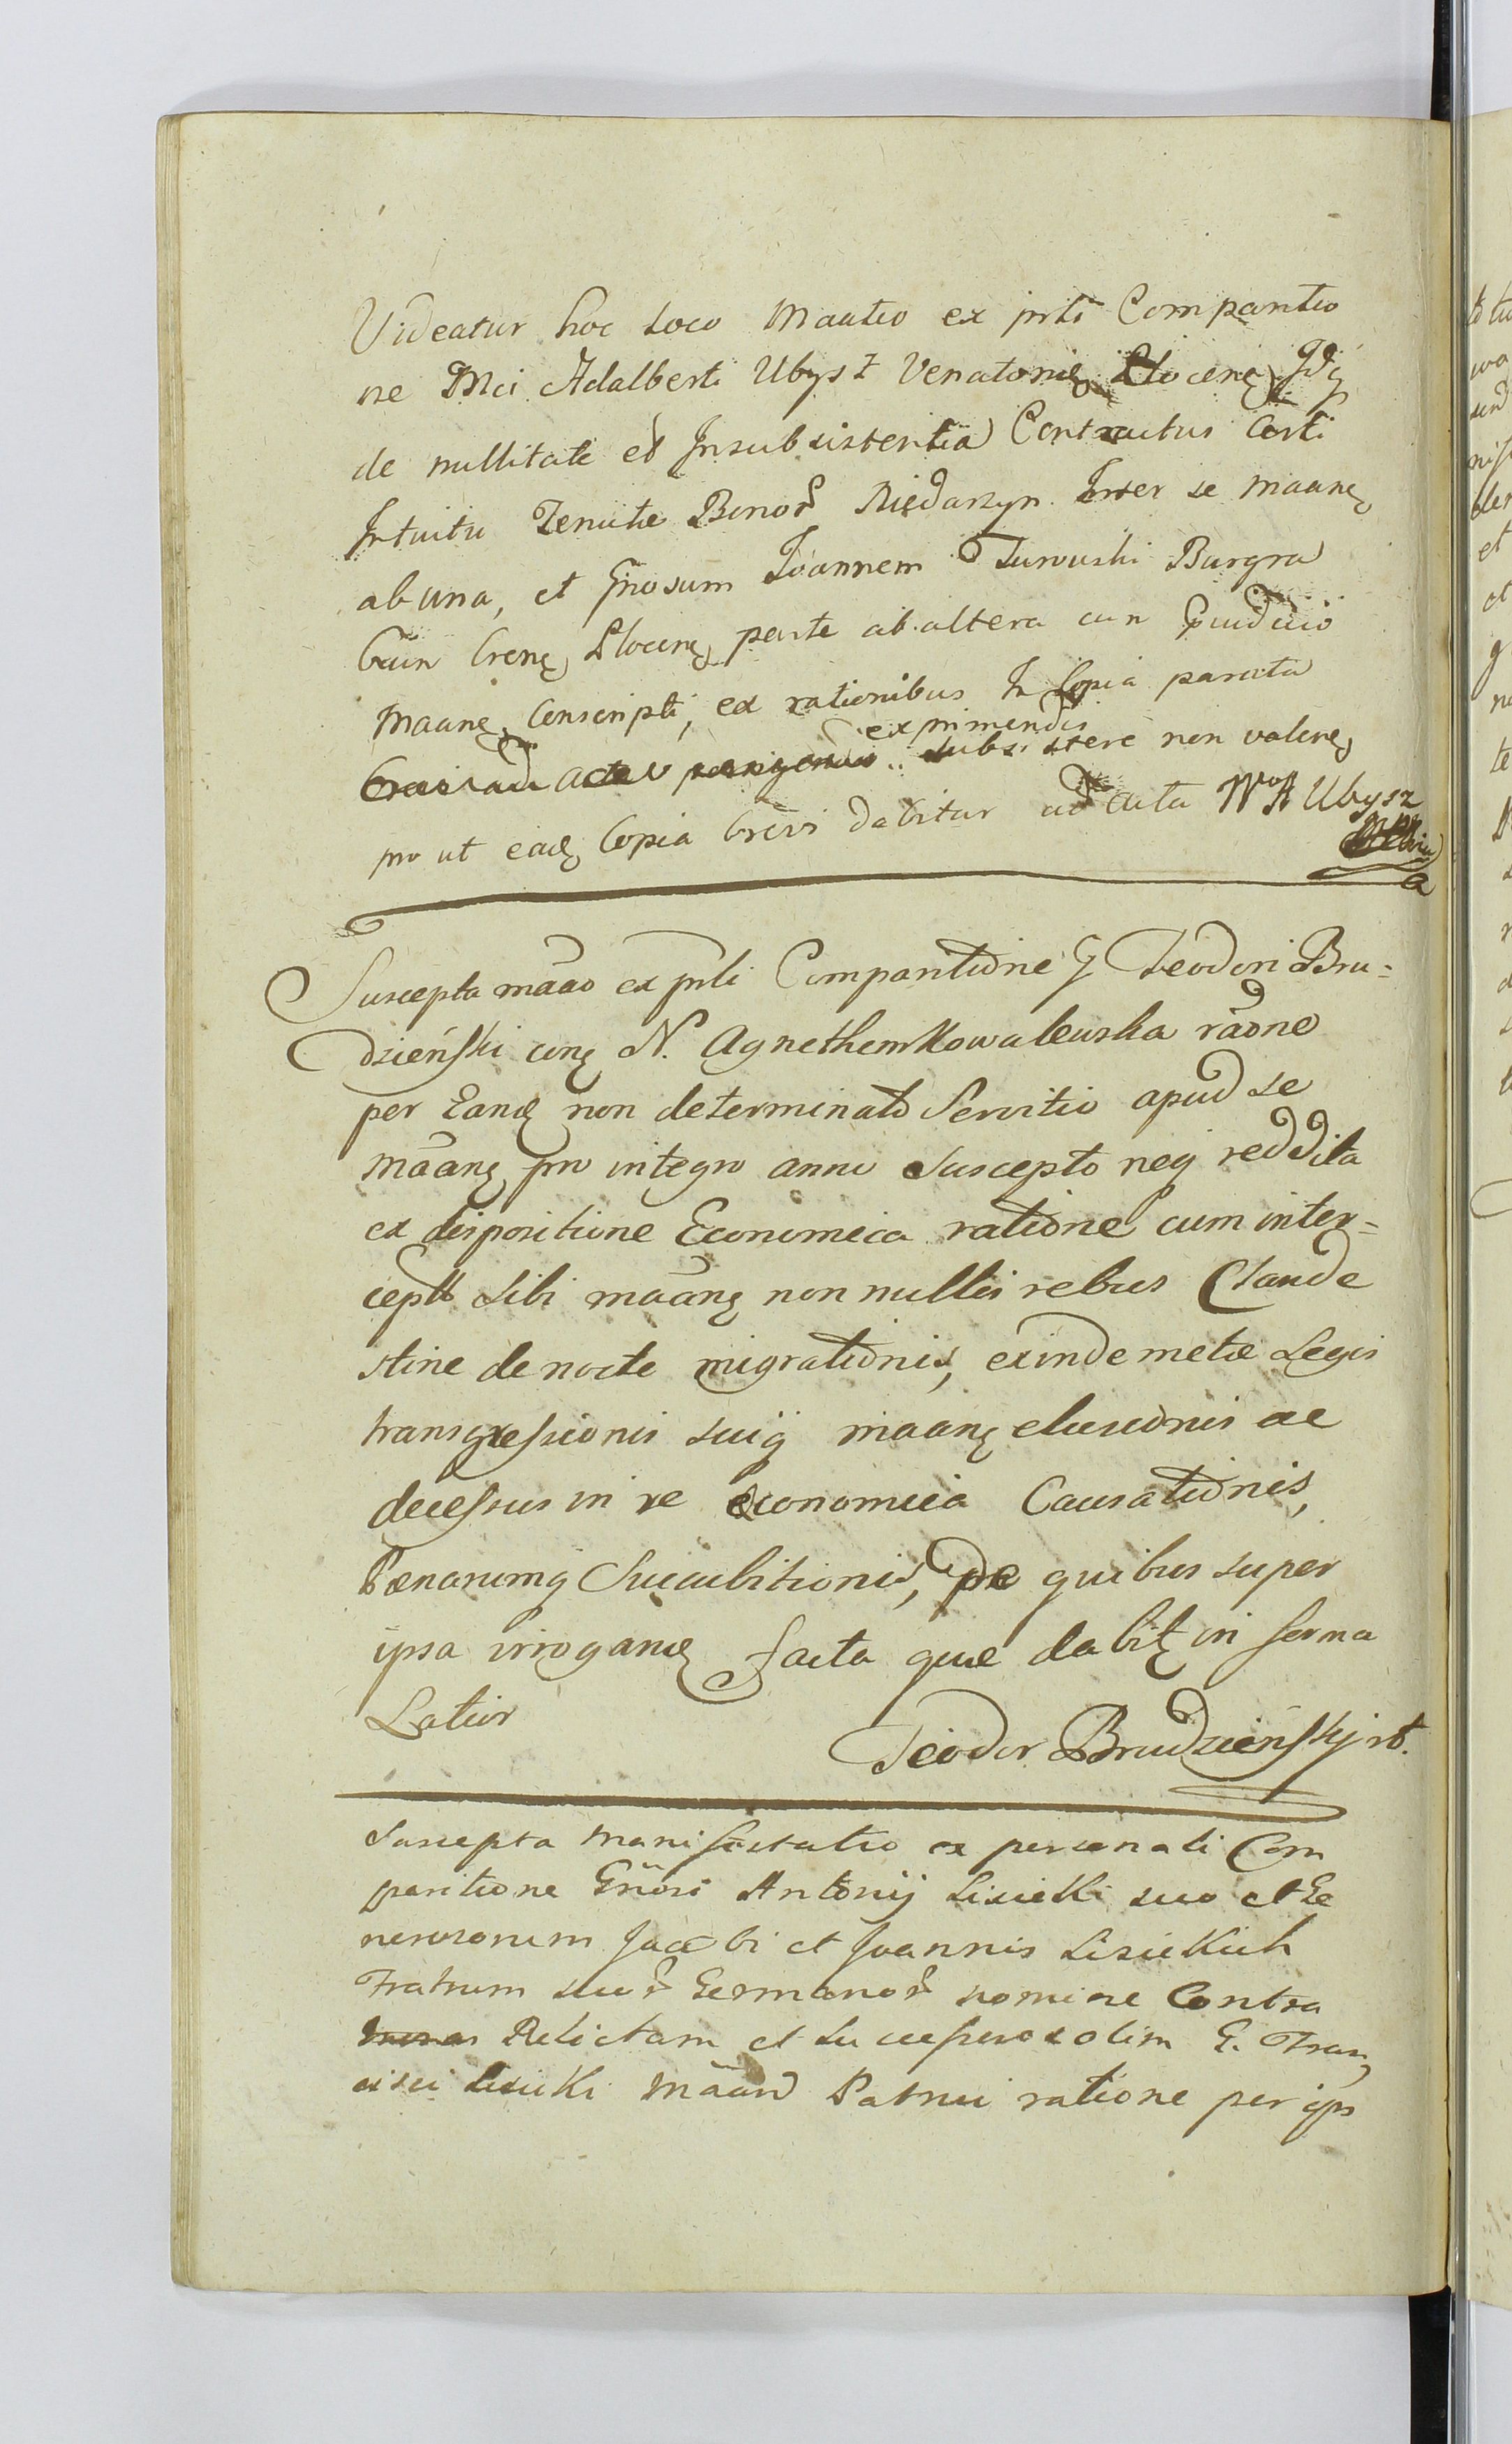 Videatur hoc loco Maatio ex prli Comparitio
ne Mci Adalberti Ubysz Venatoris Plocen
de nullitate et Insubsistentia Contractus Certi
Intuitu Tenutæ Bonor Niedarzyn Inter se maane
ab una, et Gnosum Ioannem Turowski Burgra
bium Crens Plocens parte ab altera cum
Maane Conscripti, ex rationibus In Copia parata
exprimendis
subsistere non valens
pro ut eade Copia brevi dabitur ad acta W A Ubysz
Suscepta maao ex prli Comparitione G Teodori Bru-
dzieński cong N. Agnethem Kowalewska raone
per Eande non determinato Servitio apud se
maane pro integro anno Suscepto neq reddita
ex dispositione Economica ratione cum inter-
ceptis sibi maane non nullis rebus Clande
stine de nocte migrationis, exinde metæ Legis
transgressionis suiq maane elusionis ac
decessus in re economica Causationis,
Pænarumq Succubitionis, de quibus super
ipsa irrogande facta quæ dabit in forma
Latior
Teodor Brudzieńskj
Suscepta Manifestatio ex personali Com
paritione Gnosi Antonij Lisicki suo et Ge
nerosorum Jacobi et Joannis Lisickich
Fratrum suor Germanor nomine Contra
Relictam et Successores olim G. Fran
cisci Lisicki Maand Patrui ratione per ips